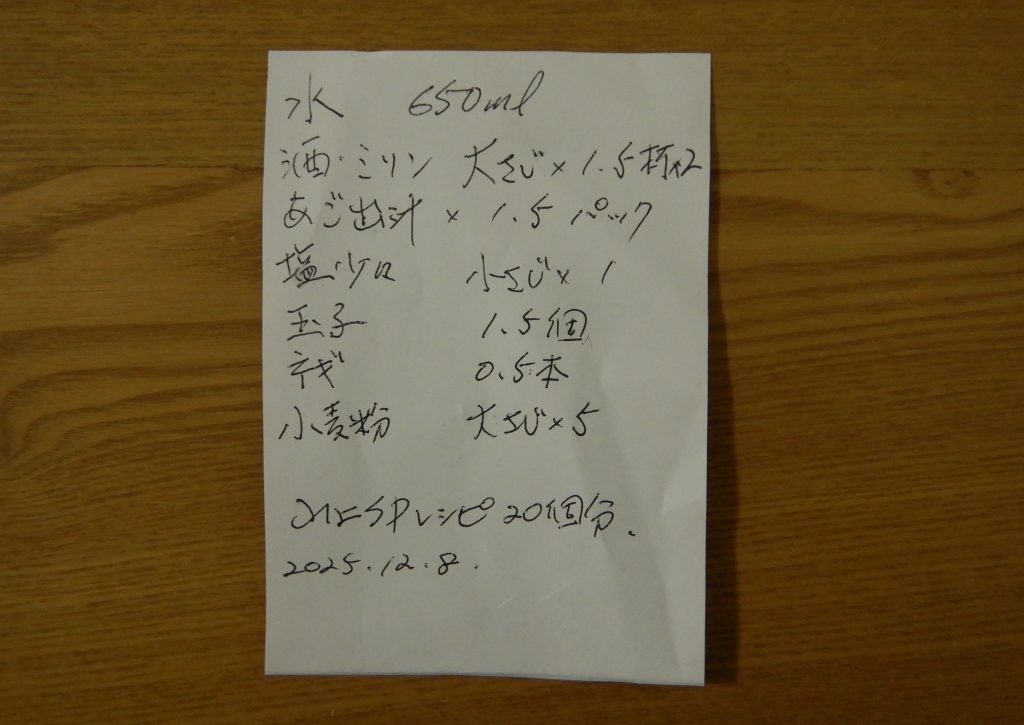 水 650ml
酒・ミリン 大さじ×1.5杯×2
あご出汁 × 1.5パック
塩少々 小さじ×1
玉子 1.5個
ネギ 0.5本
小麦粉 大さじ×5
SPレシピ20個分.
2025.12.8.